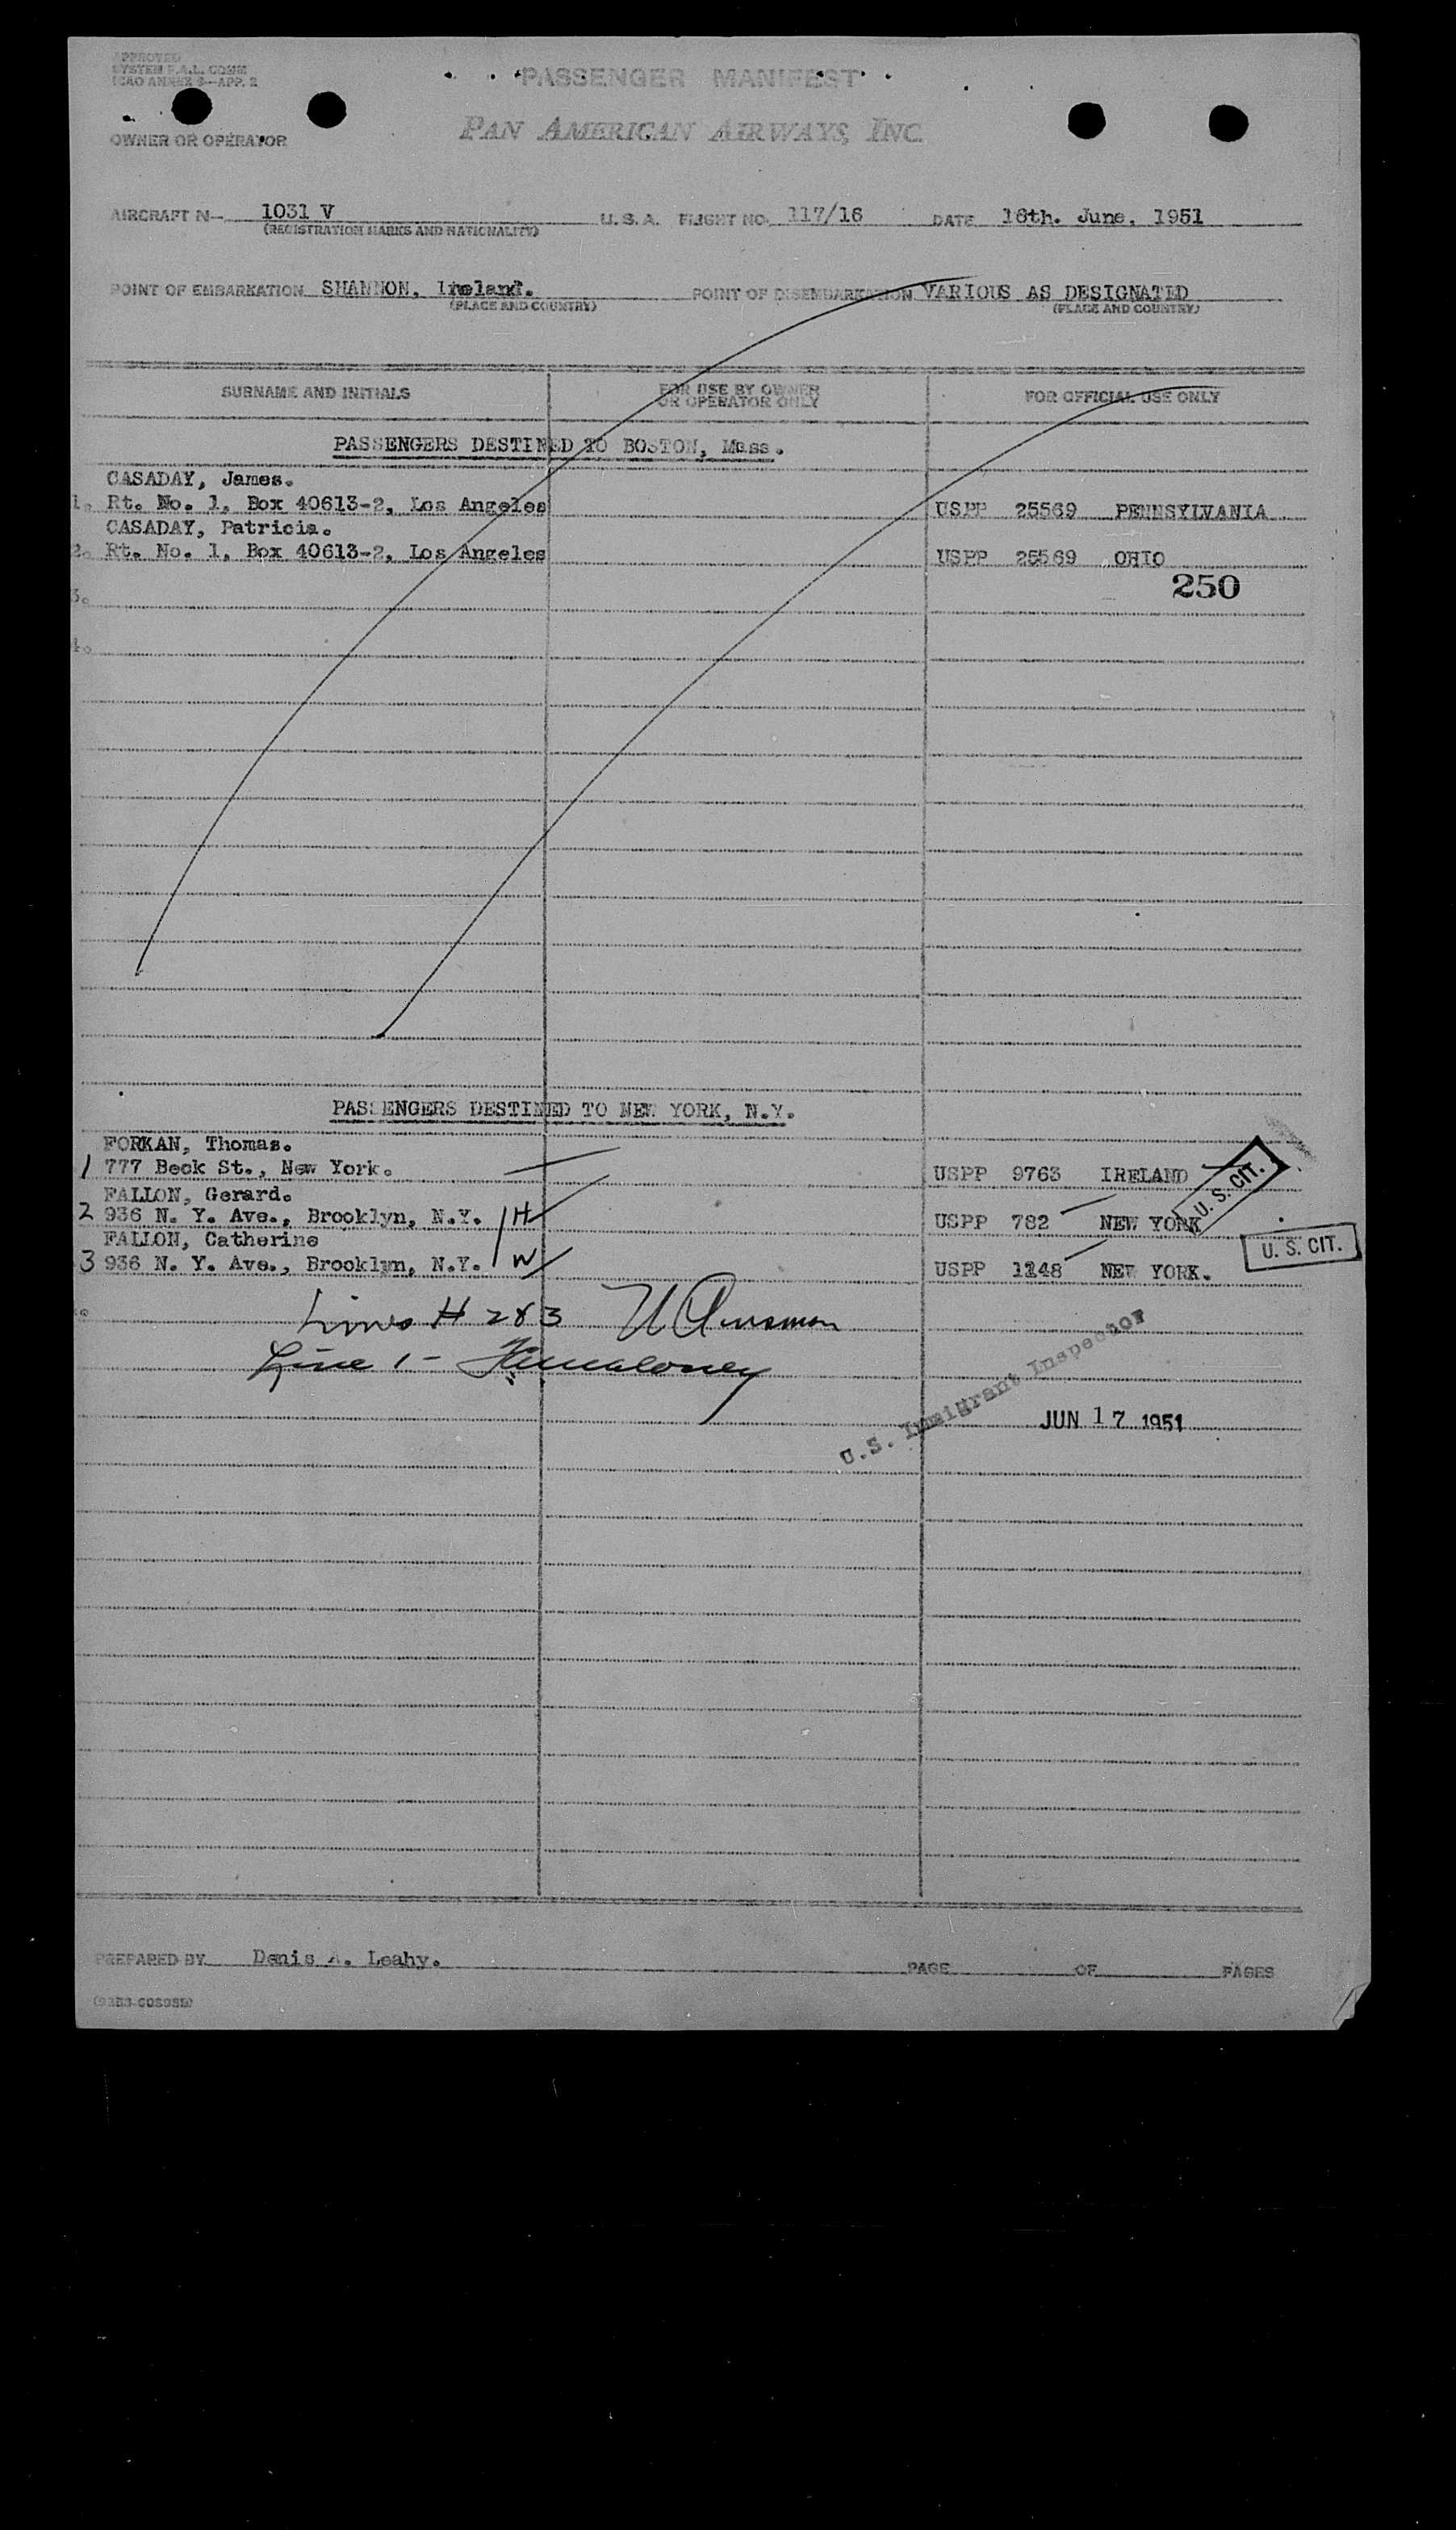 APPROVED
SYSTEM F.A.L. COMM
ICAO ANNEX 9—APP. 2
PASSENGER MANIFEST
OWNER OR OPERATOR PAN AMERICAN AIRWAYS, INC.
AIRCRAFT N— 1031 V U. S. A. FLIGHT NO. 117/16 DATE 16th. June, 1951
(REGISTRATION MARKS AND NATIONALITY)
POINT OF EMBARKATION SHANNON, Ireland. POINT OF DISEMBARKATION VARIOUS AS DESIGNATED
(PLACE AND COUNTRY) (PLACE AND COUNTRY)
SURNAME AND INITIALS FOR USE BY OWNER OR OPERATOR ONLY FOR OFFICIAL USE ONLY
PASSENGERS DESTINED TO BOSTON, Mass.
CASADAY, James.
1. Rt. No. 1, Box 40613-2, Los Angeles USPP 25569 PENNSYLVANIA
CASADAY, Patricia.
2. Rt. No. 1, Box 40613-2, Los Angeles USPP 25569 OHIO
250
3.
4.
PASSENGERS DESTINED TO NEW YORK, N.Y.
FORKAN, Thomas.
1 777 Beck St., New York. USPP 9763 IRELAND U. S. CIT.
FALLON, Gerard.
2 936 N. Y. Ave., Brooklyn, N.Y. H USPP 782 NEW YORK
FALLON, Catherine
3 936 N. Y. Ave., Brooklyn, N.Y. W USPP 1248 NEW YORK. U. S. CIT.
Lines # 2&3
Line 1 -
U.S. Immigrant Inspector
JUN 17 1951
PREPARED BY Denis A. Leahy. PAGE OF PAGES